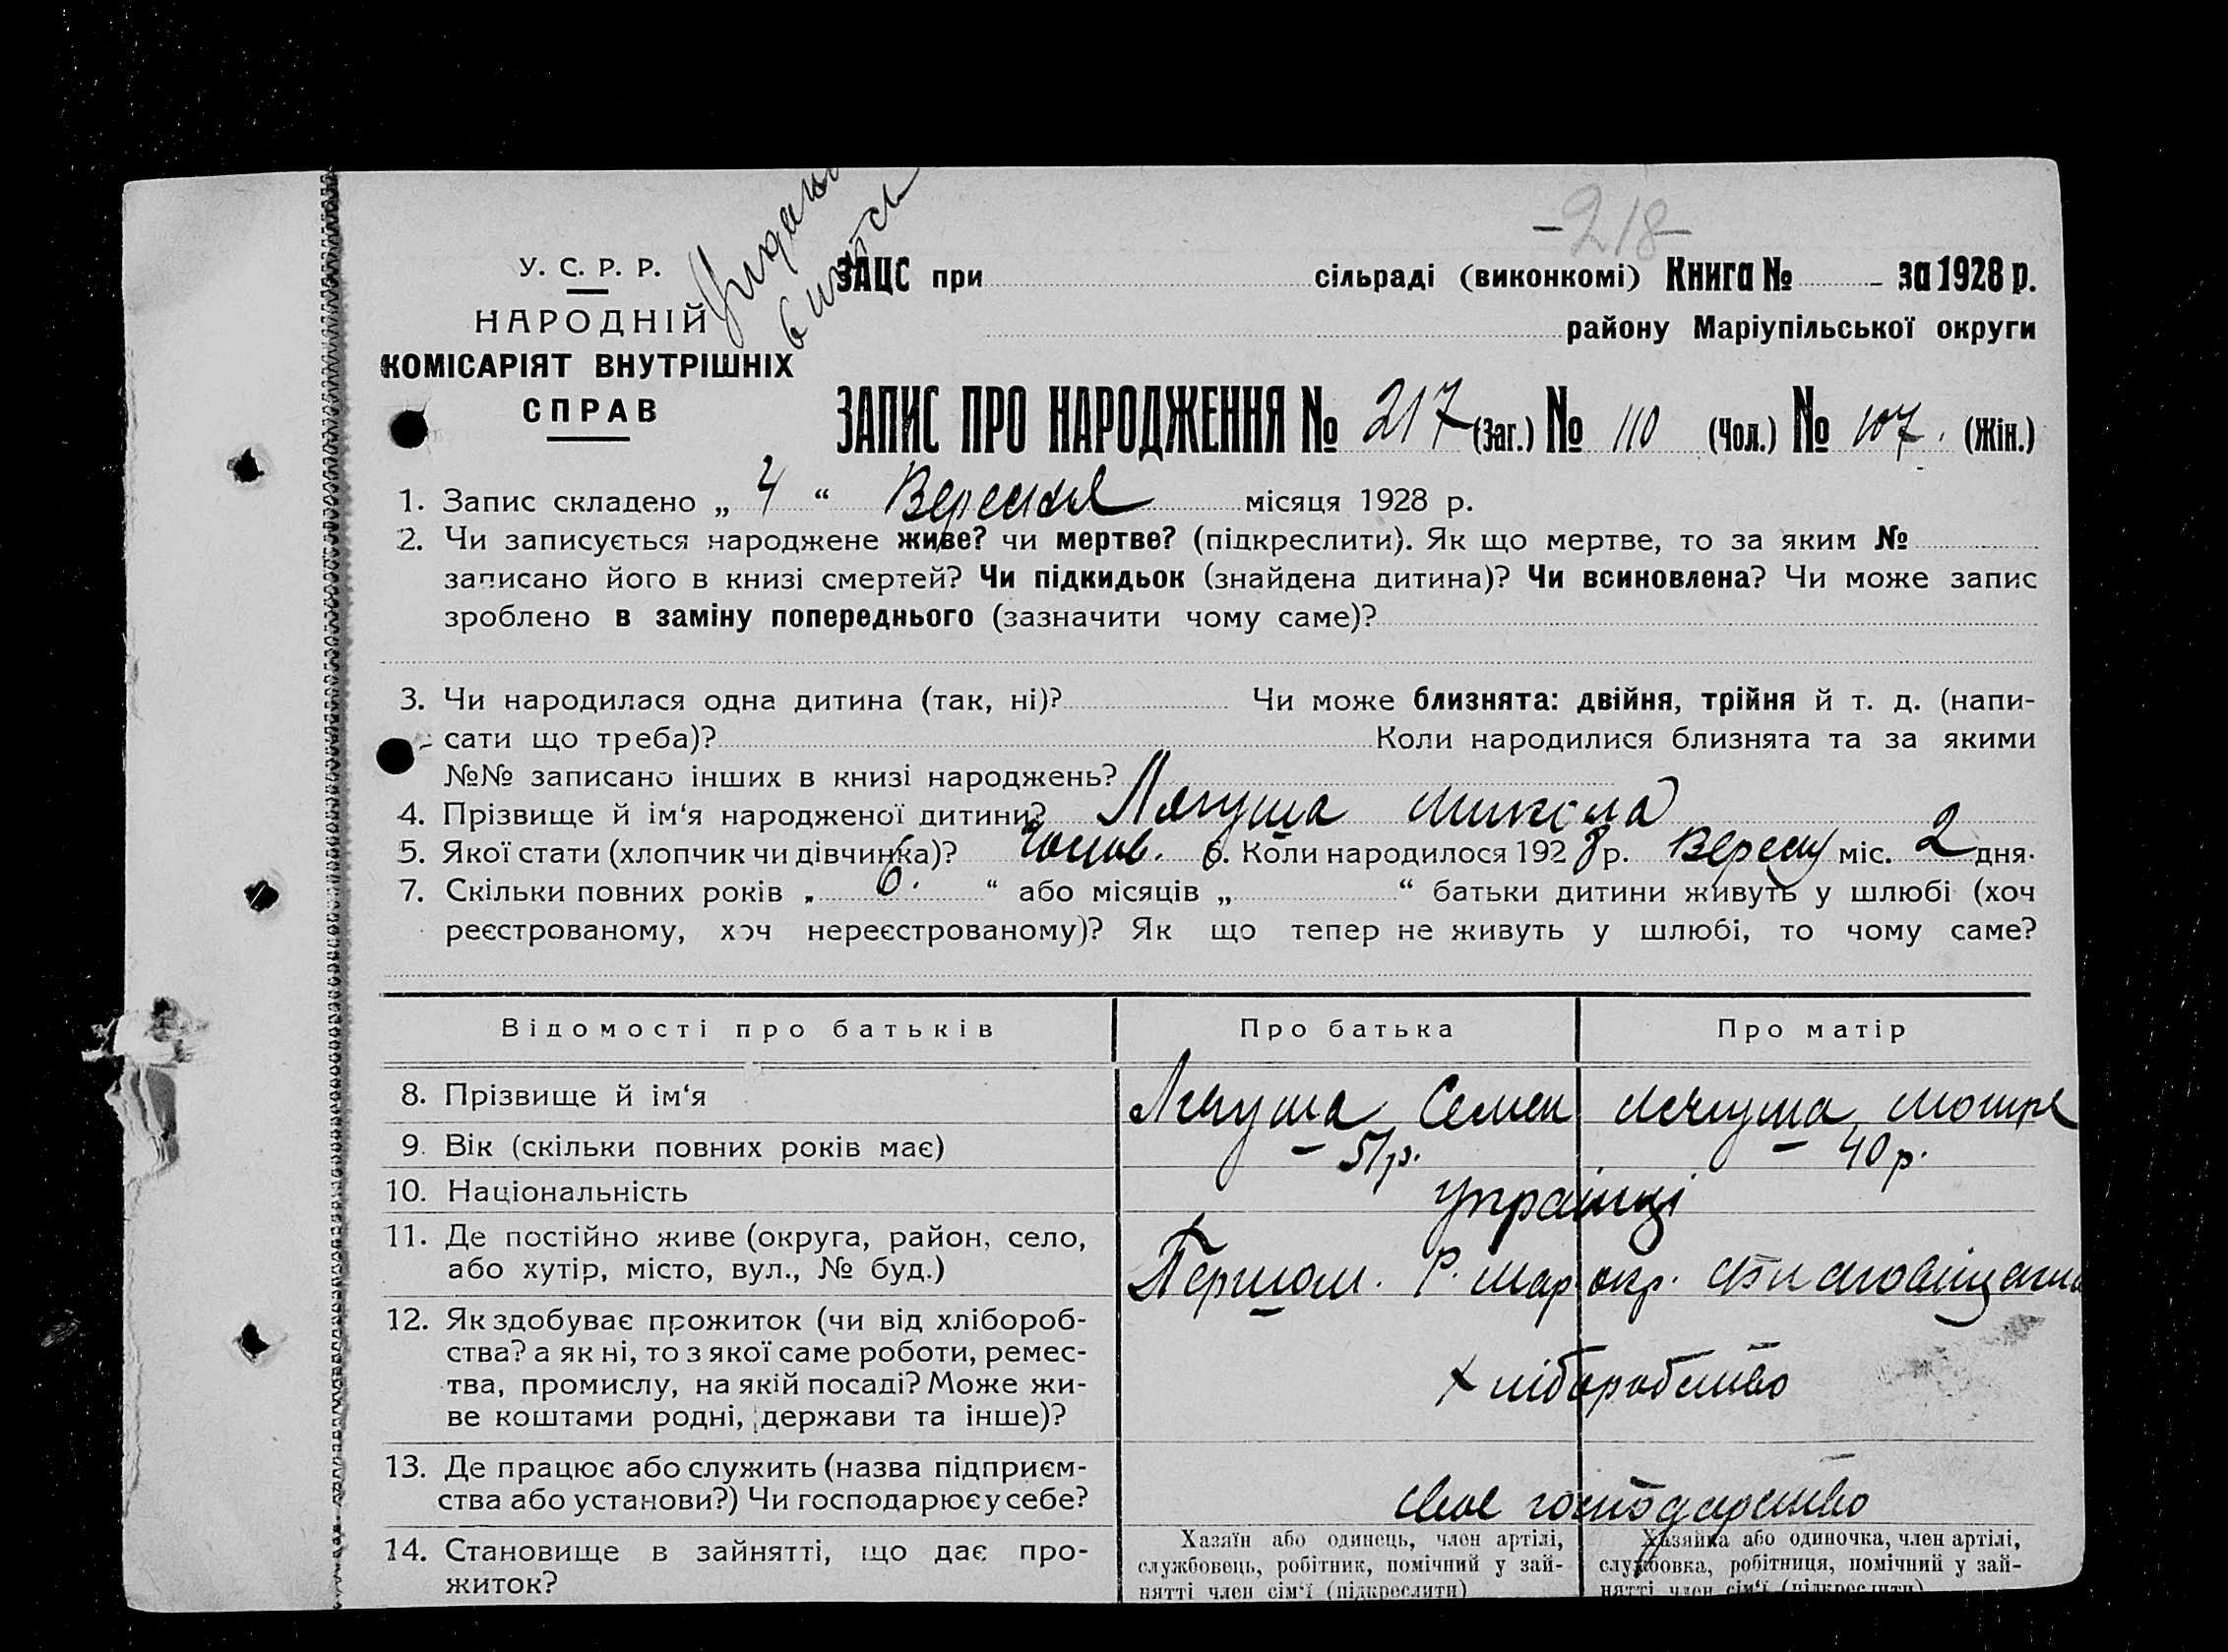 -218-
У. С. Р. Р.
НАРОДНІЙ
КОМІСАРІЯТ ВНУТРІШНІХ
СПРАВ
ЗАЦС при сільраді (виконкомі) Книга № за 1928 р.
району Маріупільської округи
ЗАПИС ПРО НАРОДЖЕННЯ № 217 (Заг.) № 110 (Чол.) № 107. (Жін.)
1. Запис складено „ 4 “ Вересня місяця 1928 р.
2. Чи записується народжене живе? чи мертве? (підкреслити). Як що мертве, то за яким №
записано його в книзі смертей? Чи підкидьок (знайдена дитина)? Чи всиновлена? Чи може запис
зроблено в заміну попереднього (зазначити чому саме)?
3. Чи народилася одна дитина (так, ні)? Чи може близнята: двійня, трійня й т. д. (напи-
сати що треба)? Коли народилися близнята та за якими
№№ записано інших в книзі народжень?
4. Прізвище й ім‘я народженої дитини? Микола
5. Якої стати (хлопчик чи дівчинка)? 6. Коли народилося 1928 р. міс. 2 дня.
7. Скільки повних років „ 6. “ або місяців „ “ батьки дитини живуть у шлюбі (хоч
реєстрованому, хоч нереєстрованому)? Як що тепер не живуть у шлюбі, то чому саме?
Відомості про батьків Про батька Про матір
8. Прізвище й ім‘я Семен
9. Вік (скільки повних років має) 51р. 40 р.
10. Національність українці
11. Де постійно живе (округа, район, село,
або хутір, місто, вул., № буд.) Першом. Р. Мар. окр.
12. Як здобуває прожиток (чи від хлібороб-
ства? а як ні, то з якої саме роботи, ремес-
тва, промислу, на якій посаді? Може жи-
ве коштами родні, держави та інше)? хліборобство
13. Де працює або служить (назва підприєм-
ства або установи?) Чи господарює у себе? своє господарство
14. Становище в зайнятті, що дає про-
житок?
Хазяїн або одинець, член артілі,
службовець, робітник, помічний у зай-
нятті член сім‘ї (підкреслити)
Хазяйка або одиночка, член артілі,
службовка, робітниця, помічний у зай-
нятті член сім‘ї (підкреслити)